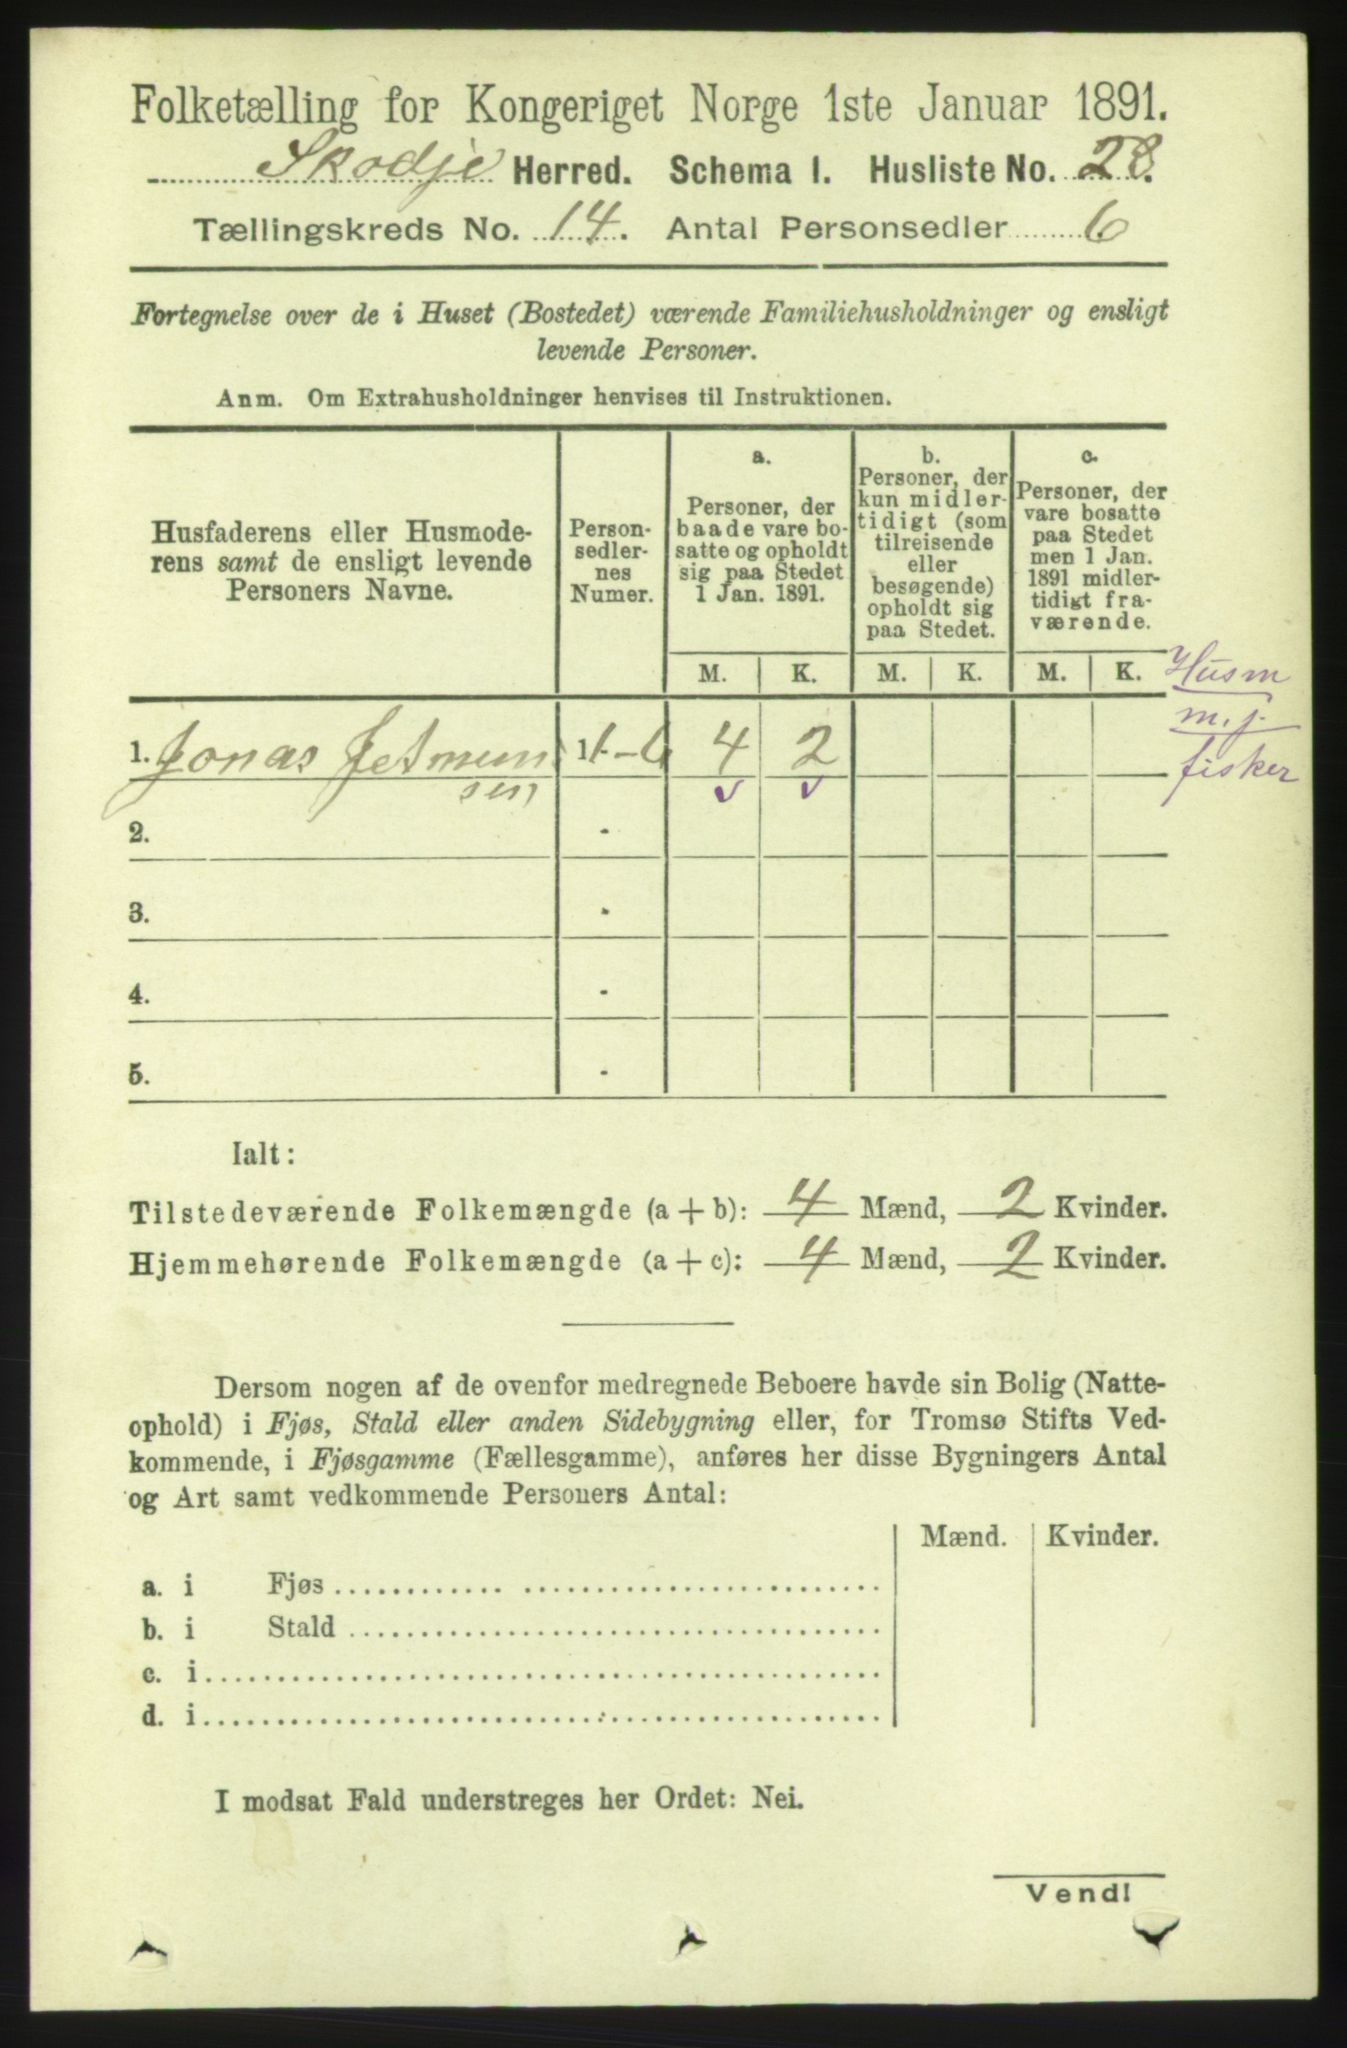 Folketælling for Kongeriget Norge 1ste Januar 1891.
Skodje Herred. Schema I. Husliste No. 28.
Tællingskreds No. 14. Antal Personsedler 6
Fortegnelse over de i Huset (Bostedet) værende Familiehusholdninger og ensligt
levende Personer.
Anm. Om Extrahusholdninger henvises til Instruktionen.
Husfaderens eller Husmode-
rens samt de ensligt levende
Personers Navne.
Person-
sedler-
nes
Numer.
a.
Personer, der
baade vare bo-
satte og opholdt
sig paa Stedet
1 Jan. 1891.
b.
Personer, der
kun midler-
tidigt (som
tilreisende
eller
besøgende)
opholdt sig
paa Stedet.
c.
Personer, der
vare bosatte
paa Stedet
men 1 Jan.
1891 midler-
tidigt fra-
værende.
M. K. M. K. M. K.
Husm
m. j.
fisker
1. Jonas Jetmund
sen
1-6 4 2
2. -
3. -
4. -
5. -
Ialt:
Tilstedeværende Folkemængde (a + b): 4 Mænd, 2 Kvinder.
Hjemmehørende Folkemængde (a + c): 4 Mænd, 2 Kvinder.
Dersom nogen af de ovenfor medregnede Beboere havde sin Bolig (Natte-
ophold) i Fjøs, Stald eller anden Sidebygning eller, for Tromsø Stifts Ved-
kommende, i Fjøsgamme (Fællesgamme), anføres her disse Bygningers Antal
og Art samt vedkommende Personers Antal:
Mænd. Kvinder.
a. i Fjøs
b. i Stald
c. i
d. i
I modsat Fald understreges her Ordet: Nei.
Vend!